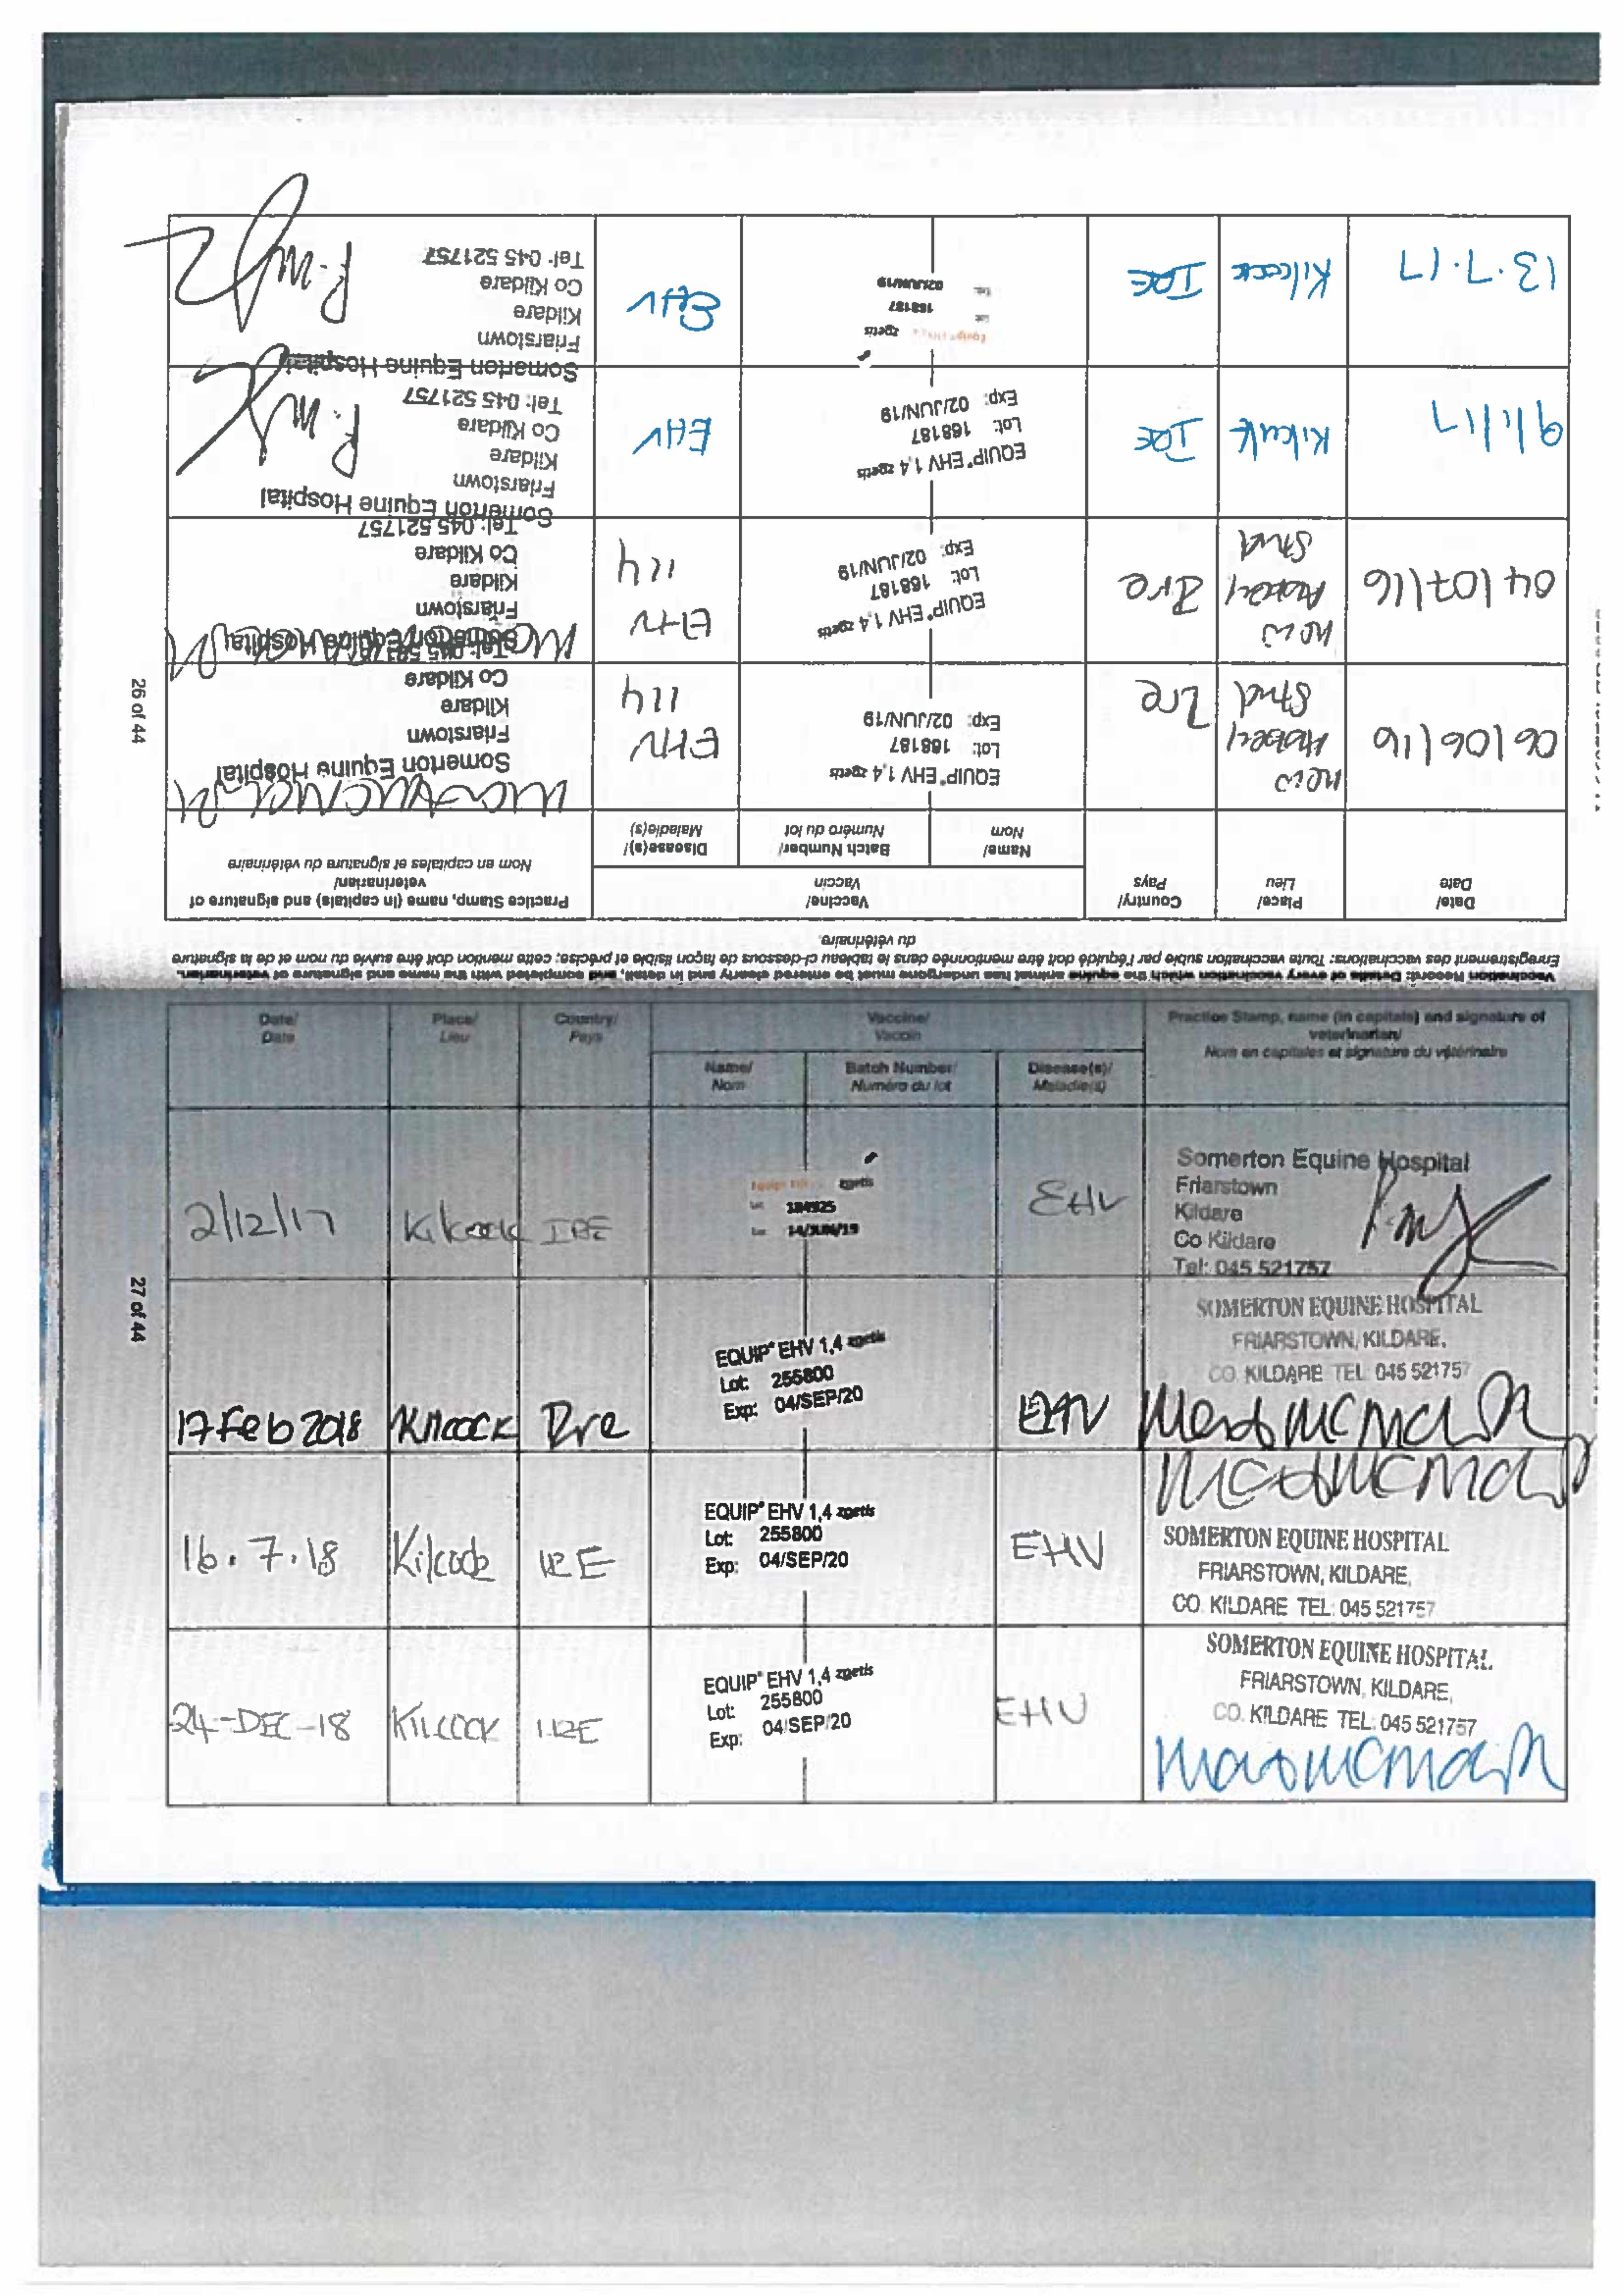 Vaccination Record: Details of every vaccination which the equine animal has undergone must be entered clearly and in detail, and completed with the name and signature of veterinarian.
Enregistrement des vaccinations: Toute vaccination subie par l'équidé doit être mentionnée dans le tableau ci-dessous de façon lisible et précise; cette mention doit être suivie du nom et de la signature
du vétérinaire.
Date/ Place/ Country/ Vaccine/ Practice Stamp, name (in capitals) and signature of
Date Lieu Pays Vaccin veterinarian/
Name/ Batch Number/ Disease(s)/ Nom en capitales et signature du vétérinaire
Nom Numéro du lot Maladie(s)
06/06/16 New Abbey Stud Ire
EQUIP® EHV 1,4 zoetis
Lot: 168187
Exp: 02/JUN/19
EHV
114
Somerton Equine Hospital
Friarstown
Kildare
Co Kildare
Tel: 045 521757
04/07/16 New Abbey Stud Ire
EQUIP® EHV 1,4 zoetis
Lot: 168187
Exp: 02/JUN/19
EHV
114
Somerton Equine Hospital
Friarstown
Kildare
Co Kildare
Tel: 045 521757
9/1/17 Kilcock IRE
EQUIP® EHV 1,4 zoetis
Lot: 168187
Exp: 02/JUN/19
EHV
Somerton Equine Hospital
Friarstown
Kildare
Co Kildare
Tel: 045 521757
13.7.17 Kilcock IRE
zoetis
168187
02/JUN/19
EHV
Somerton Equine Hospital
Friarstown
Kildare
Co Kildare
Tel: 045 521757
26 of 44
Date/ Place/ Country/ Vaccine/ Practice Stamp, name (in capitals) and signature of
Date Lieu Pays Vaccin veterinarian/
Name/ Batch Number/ Disease(s)/ Nom en capitales et signature du vétérinaire
Nom Numéro du lot Maladie(s)
2/12/17 Kilcock IRE
zoetis
184925
14/JUN/19
EHV
Somerton Equine Hospital
Friarstown
Kildare
Co Kildare
Tel: 045 521757
17 Feb 2018 Kilcock Ire
EQUIP® EHV 1,4 zoetis
Lot: 255800
Exp: 04/SEP/20
EHV
SOMERTON EQUINE HOSPITAL
FRIARSTOWN, KILDARE,
CO. KILDARE TEL: 045 521757
16.7.18 Kilcock IRE
EQUIP® EHV 1,4 zoetis
Lot: 255800
Exp: 04/SEP/20
EHV
SOMERTON EQUINE HOSPITAL
FRIARSTOWN, KILDARE,
CO. KILDARE TEL: 045 521757
24-DEC-18 KILCOCK IRE
EQUIP® EHV 1,4 zoetis
Lot: 255800
Exp: 04/SEP/20
EHV
SOMERTON EQUINE HOSPITAL
FRIARSTOWN, KILDARE,
CO. KILDARE TEL: 045 521757
27 of 44